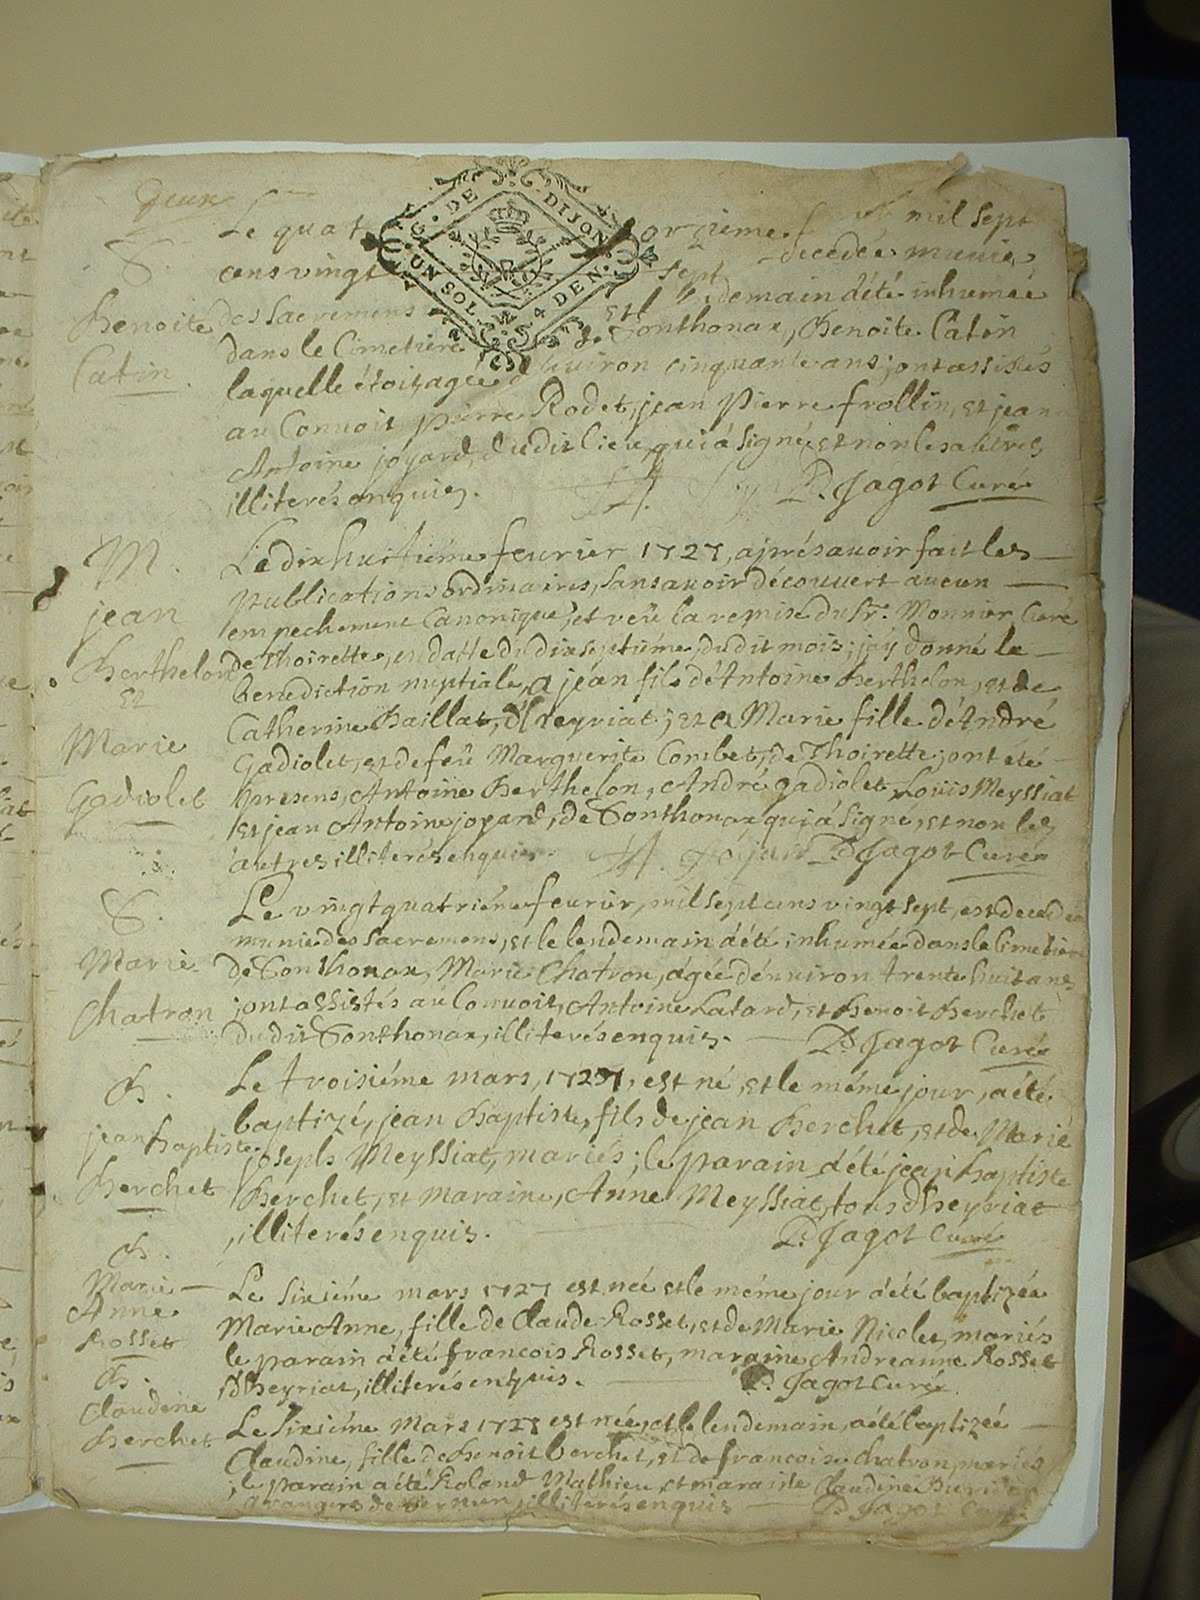 G. DE DIJON
UN SOL 4 DEN.
S.
Benoite
Catin
Le quatorzieme mil sept
cens vingt sept decedée munie
des sacremens et le demain a été inhumée
dans le Cimetiere de Sonthonax, Benoite Catin
laquelle étoit agée d'environ cinquante ans; ont assistés
au Convoit pierre Rodet, jean pierre frollin, et jean
Antoine joyard, dudit lieu, qui a signé et non les autres
illiterés enquis. P. Jagot Curé
M.
jean
Berthelon
Et
Marie
Gadiolet
Le dix huitiéme fevrier 1727, aprés avoir fait les
publications ordinaires, sans avoir découvert aucun
empechement Canonique, et veü la remise du Sr. Monnier Curé
de Thoirette, en datte du dix septiéme, dudit mois; j'ay donné la
benediction nuptiale, a jean fils d'Antoine Berthelon, et de
Catherine Baillat, d'heyriat; et a Marie fille d'André
Gadiolet, et de feü Marguerite Combet, de Thoirette; ont été
presens, Antoine Berthelon, André gadiolet, Louis Meyssiat
et jean Antoine joyard, de Sonthonax, qui a signé, et non les
autres illiterés enquis. P. Jagot Curé
S.
Marie
Chatron
Le vingt quatriéme fevrier, mil sept cens vingt sept, est decedée
munie des sacremens, et le lendemain a été inhumée dans le Cimetiere
de Sonthonax, Marie Chatron, agée d'environ trente huit ans
; ont assistés au Convoit, Antoine Latard, et Benoit Berchet
dudit Sonthonax, illiterés enquis. P. Jagot Curé
B.
jean baptiste
Berchet
Le troisiéme mars, 1727, est né, et le méme jour, a été
baptizé, jean Baptiste, fils de jean Berchet, et de Marie
joseph Meyssiat, mariés; le parain a été jean baptiste
Berchet, et maraine, Anne Meyssiat, tous d'heyriat
, illiterés enquis. P. Jagot Curé
B.
Marie
Anne
Rosset
Le sixiéme mars 1727 est née et le méme jour a été baptizée
Marie Anne, fille de Claude Rosset, et de Marie Nicolet, mariés
le parain a été francois Rosset, maraine Andreanne Rosset
d'heyriat, illiterés enquis. P. Jagot Curé
B.
Claudine
Berchet
Le Sixiéme Mars 1727 est née, et le lendemain, a été baptizée
Claudine, fille de Benoit berchet, et de francoise chatron, mariés
; le parain a été Roland Mathieu, et maraine Claudine
illiterés enquis P. Jagot Curé